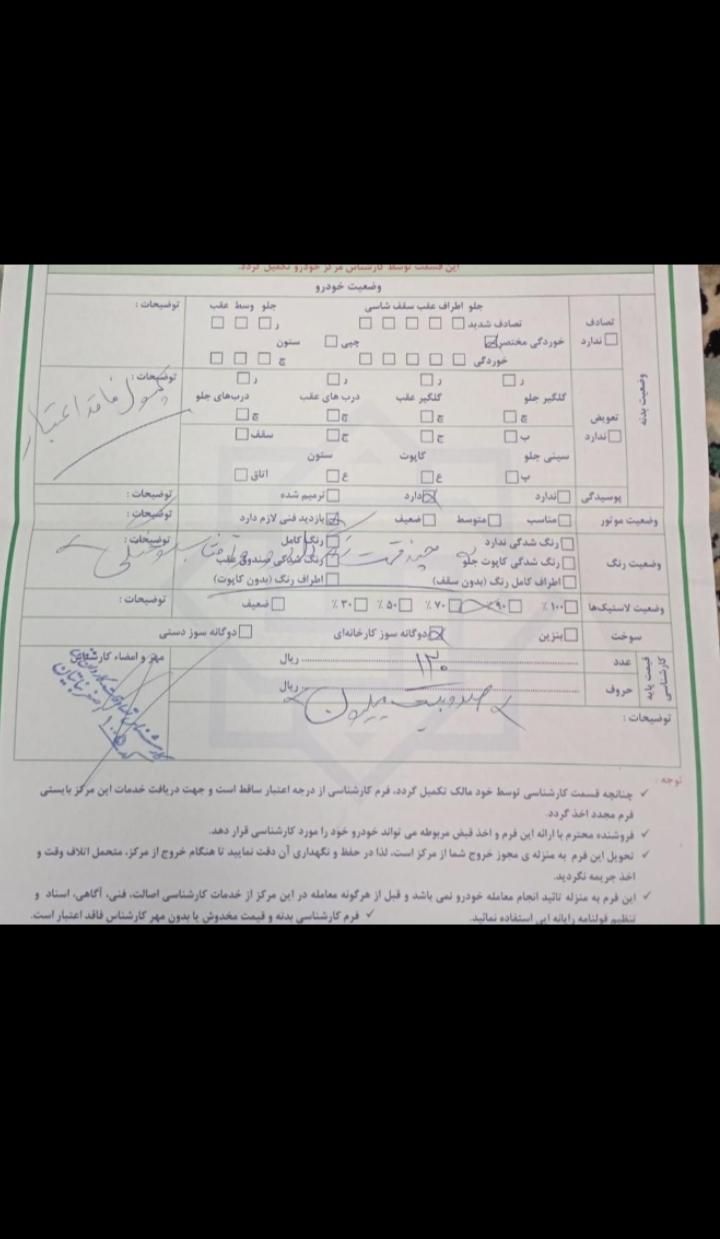 این قسمت توسط کارشناس مرکز خودرو تکمیل گردد.
وضعیت خودرو
وضعیت بدنه
تصادف
ندارد
جلو اطراف عقب سقف شاسی
جلو وسط عقب
توضیحات :
تصادف شدید
ر
خوردگی مختصر
چپی
ستون
خوردگی
چ
تعویض
ندارد
ر ر ر ر
توضیحات :
کپسول فاقد اعتبار
گلگیر جلو گلگیر عقب درب های عقب درب‌های جلو
چ چ چ چ
ب ج ج سقف
سینی جلو کاپوت ستون
پ ع ع اتاق
پوسیدگی ندارد دارد ترمیم شده توضیحات :
وضعیت موتور مناسب متوسط ضعیف بازدید فنی لازم دارد توضیحات :
وضعیت رنگ
رنگ شدگی ندارد رنگ کامل توضیحات :
رنگ شدگی کاپوت جلو رنگ شدگی صندوق عقب
چند قسمت رنگ دارد
اطراف کامل رنگ (بدون سقف) اطراف رنگ (بدون کاپوت)
وضعیت لاستیک‌ها ۱۰۰ ٪ ۹۰ ٪ ۷۰ ٪ ۵۰ ٪ ۳۰ ٪ ضعیف توضیحات :
سوخت بنزین دوگانه سوز کارخانه‌ای دوگانه سوز دستی
قیمت پایه کارشناسی
عدد ۱۲۰ ریال
مهر و امضاء کارشناس
حروف صد و بیست میلیون ریال
توضیحات :
توجه :
✓ چنانچه قسمت کارشناسی توسط خود مالک تکمیل گردد، فرم کارشناسی از درجه اعتبار ساقط است و جهت دریافت خدمات این مرکز بایستی
فرم مجدد اخذ گردد.
✓ فروشنده محترم با ارائه این فرم و اخذ قبض مربوطه می تواند خودرو خود را مورد کارشناسی قرار دهد.
✓ تحویل این فرم به منزله ی مجوز خروج شما از مرکز است، لذا در حفظ و نگهداری آن دقت نمایید تا هنگام خروج از مرکز، متحمل اتلاف وقت و
اخذ جریمه نگردید.
✓ این فرم به منزله تائید انجام معامله خودرو نمی باشد و قبل از هرگونه معامله در این مرکز از خدمات کارشناسی اصالت، فنی، آگاهی، اسناد و
تنظیم قولنامه رایانه ایی استفاده نمائید. ✓ فرم کارشناسی بدنه و قیمت مخدوش یا بدون مهر کارشناس فاقد اعتبار است.